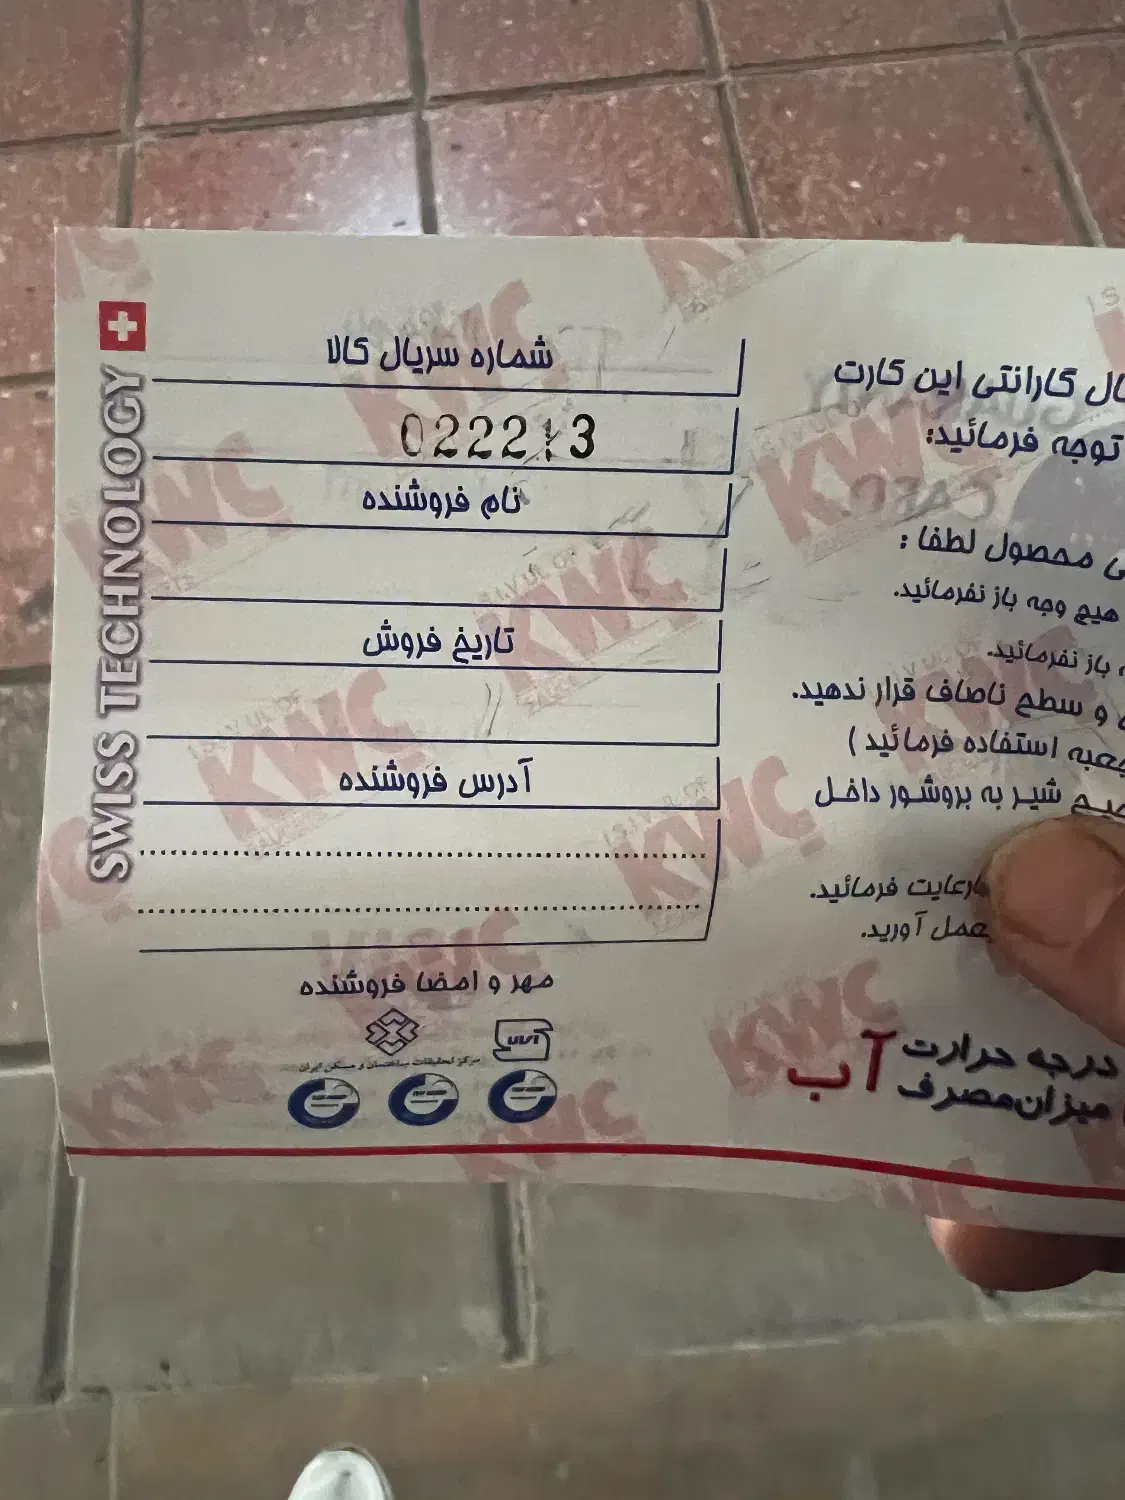 SWISS TECHNOLOGY
شماره سریال کالا
نام فروشنده
تاریخ فروش
آدرس فروشنده
مهر و امضا فروشنده
مرکز تحقیقات ساختمان و مسکن ایران
گارانتی این کارت
توجه فرمائید:
محصول لطفا :
هیچ وجه باز نفرمائید.
باز نفرمائید.
و سطح ناصاف قرار ندهید.
استفاده فرمائید )
شیر به بروشور داخل
رعایت فرمائید.
عمل آورید.
درجه حرارت
میزان مصرف
آب
KWC